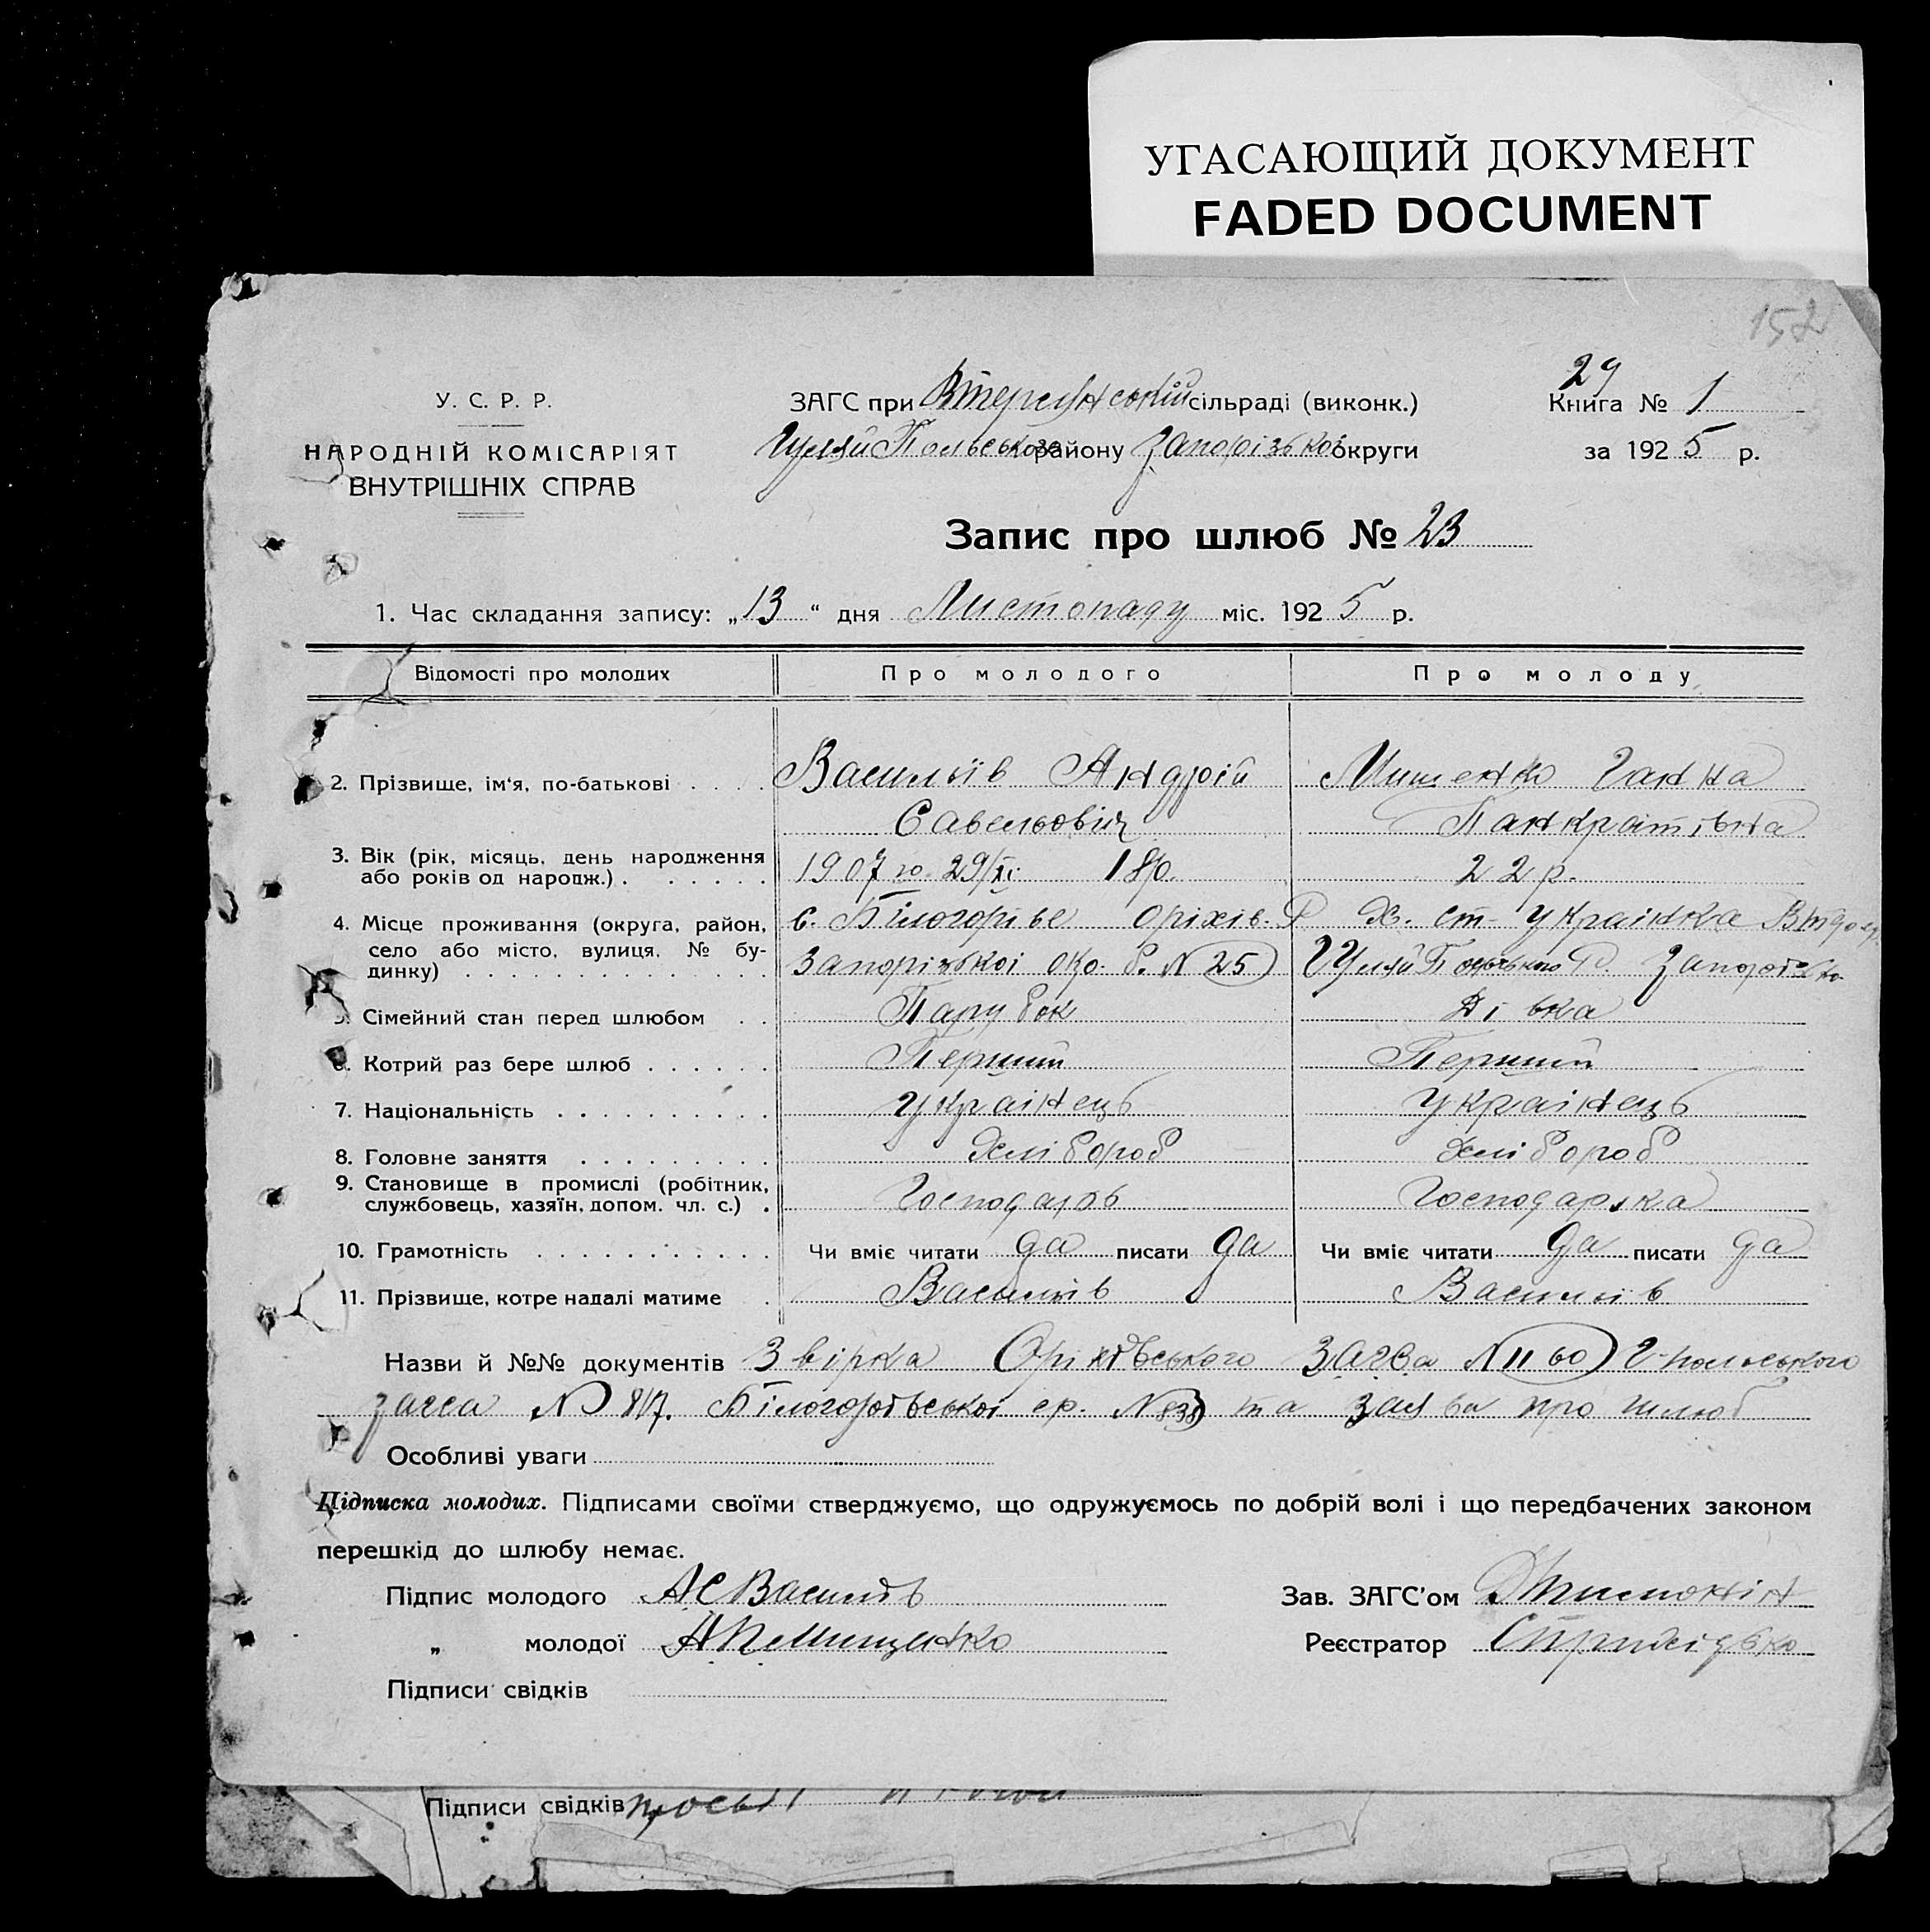 УГАСАЮЩИЙ ДОКУМЕНТ
FADED DOCUMENT
152
У. С. Р. Р.
НАРОДНІЙ КОМІСАРІЯТ
ВНУТРІШНІХ СПРАВ
ЗАГС при сільраді (виконк.)
Гуляй Польського району Запорізької округи
29
Книга № 1
за 1925 р.
Запис про шлюб № 23
1. Час складання запису: „13“ дня Листопаду міс. 1925 р.
Відомості про молодих Про молодого Про молоду
2. Прізвище, ім'я, по-батькові Васильїв Андрій Мишенко Ганна
Савельович Панкратівна
3. Вік (рік, місяць, день народження або років од народж.) 1907 го. 29/XI 18 р. 22 р.
4. Місце проживання (округа, район, с. Білогорівс Оріхів. Р. Х. ст. Українка
село або місто, вулиця, № бу-динку) Запорізької окр. б. N 25 Гуляй Польського Р. Запорізько
5. Сімейний стан перед шлюбом Парубок Дівка
6. Котрий раз бере шлюб Перший Перший
7. Національність Українець Українець
8. Головне заняття Хлібороб Хлібороб
9. Становище в промислі (робітник, службовець, хазяїн, допом. чл. с.) Господарь Господарька
10. Грамотність Чи вміє читати да писати да Чи вміє читати да писати да
11. Прізвище, котре надалі матиме Васильїв Васильів
Назви й №№ документів Звірка Оріхівського Загса N 1160 Г-польського
загса № 817. Білогорівської ср. N 838 та заява про шлюб
Особливі уваги
Підписка молодих. Підписами своїми стверджуємо, що одружуємось по добрій волі і що передбачених законом
перешкід до шлюбу немає.
Підпис молодого АС Васильїв Зав. ЗАГС'ом
„ молодої АП Мищенко Реєстратор
Підписи свідків
Підписи свідків